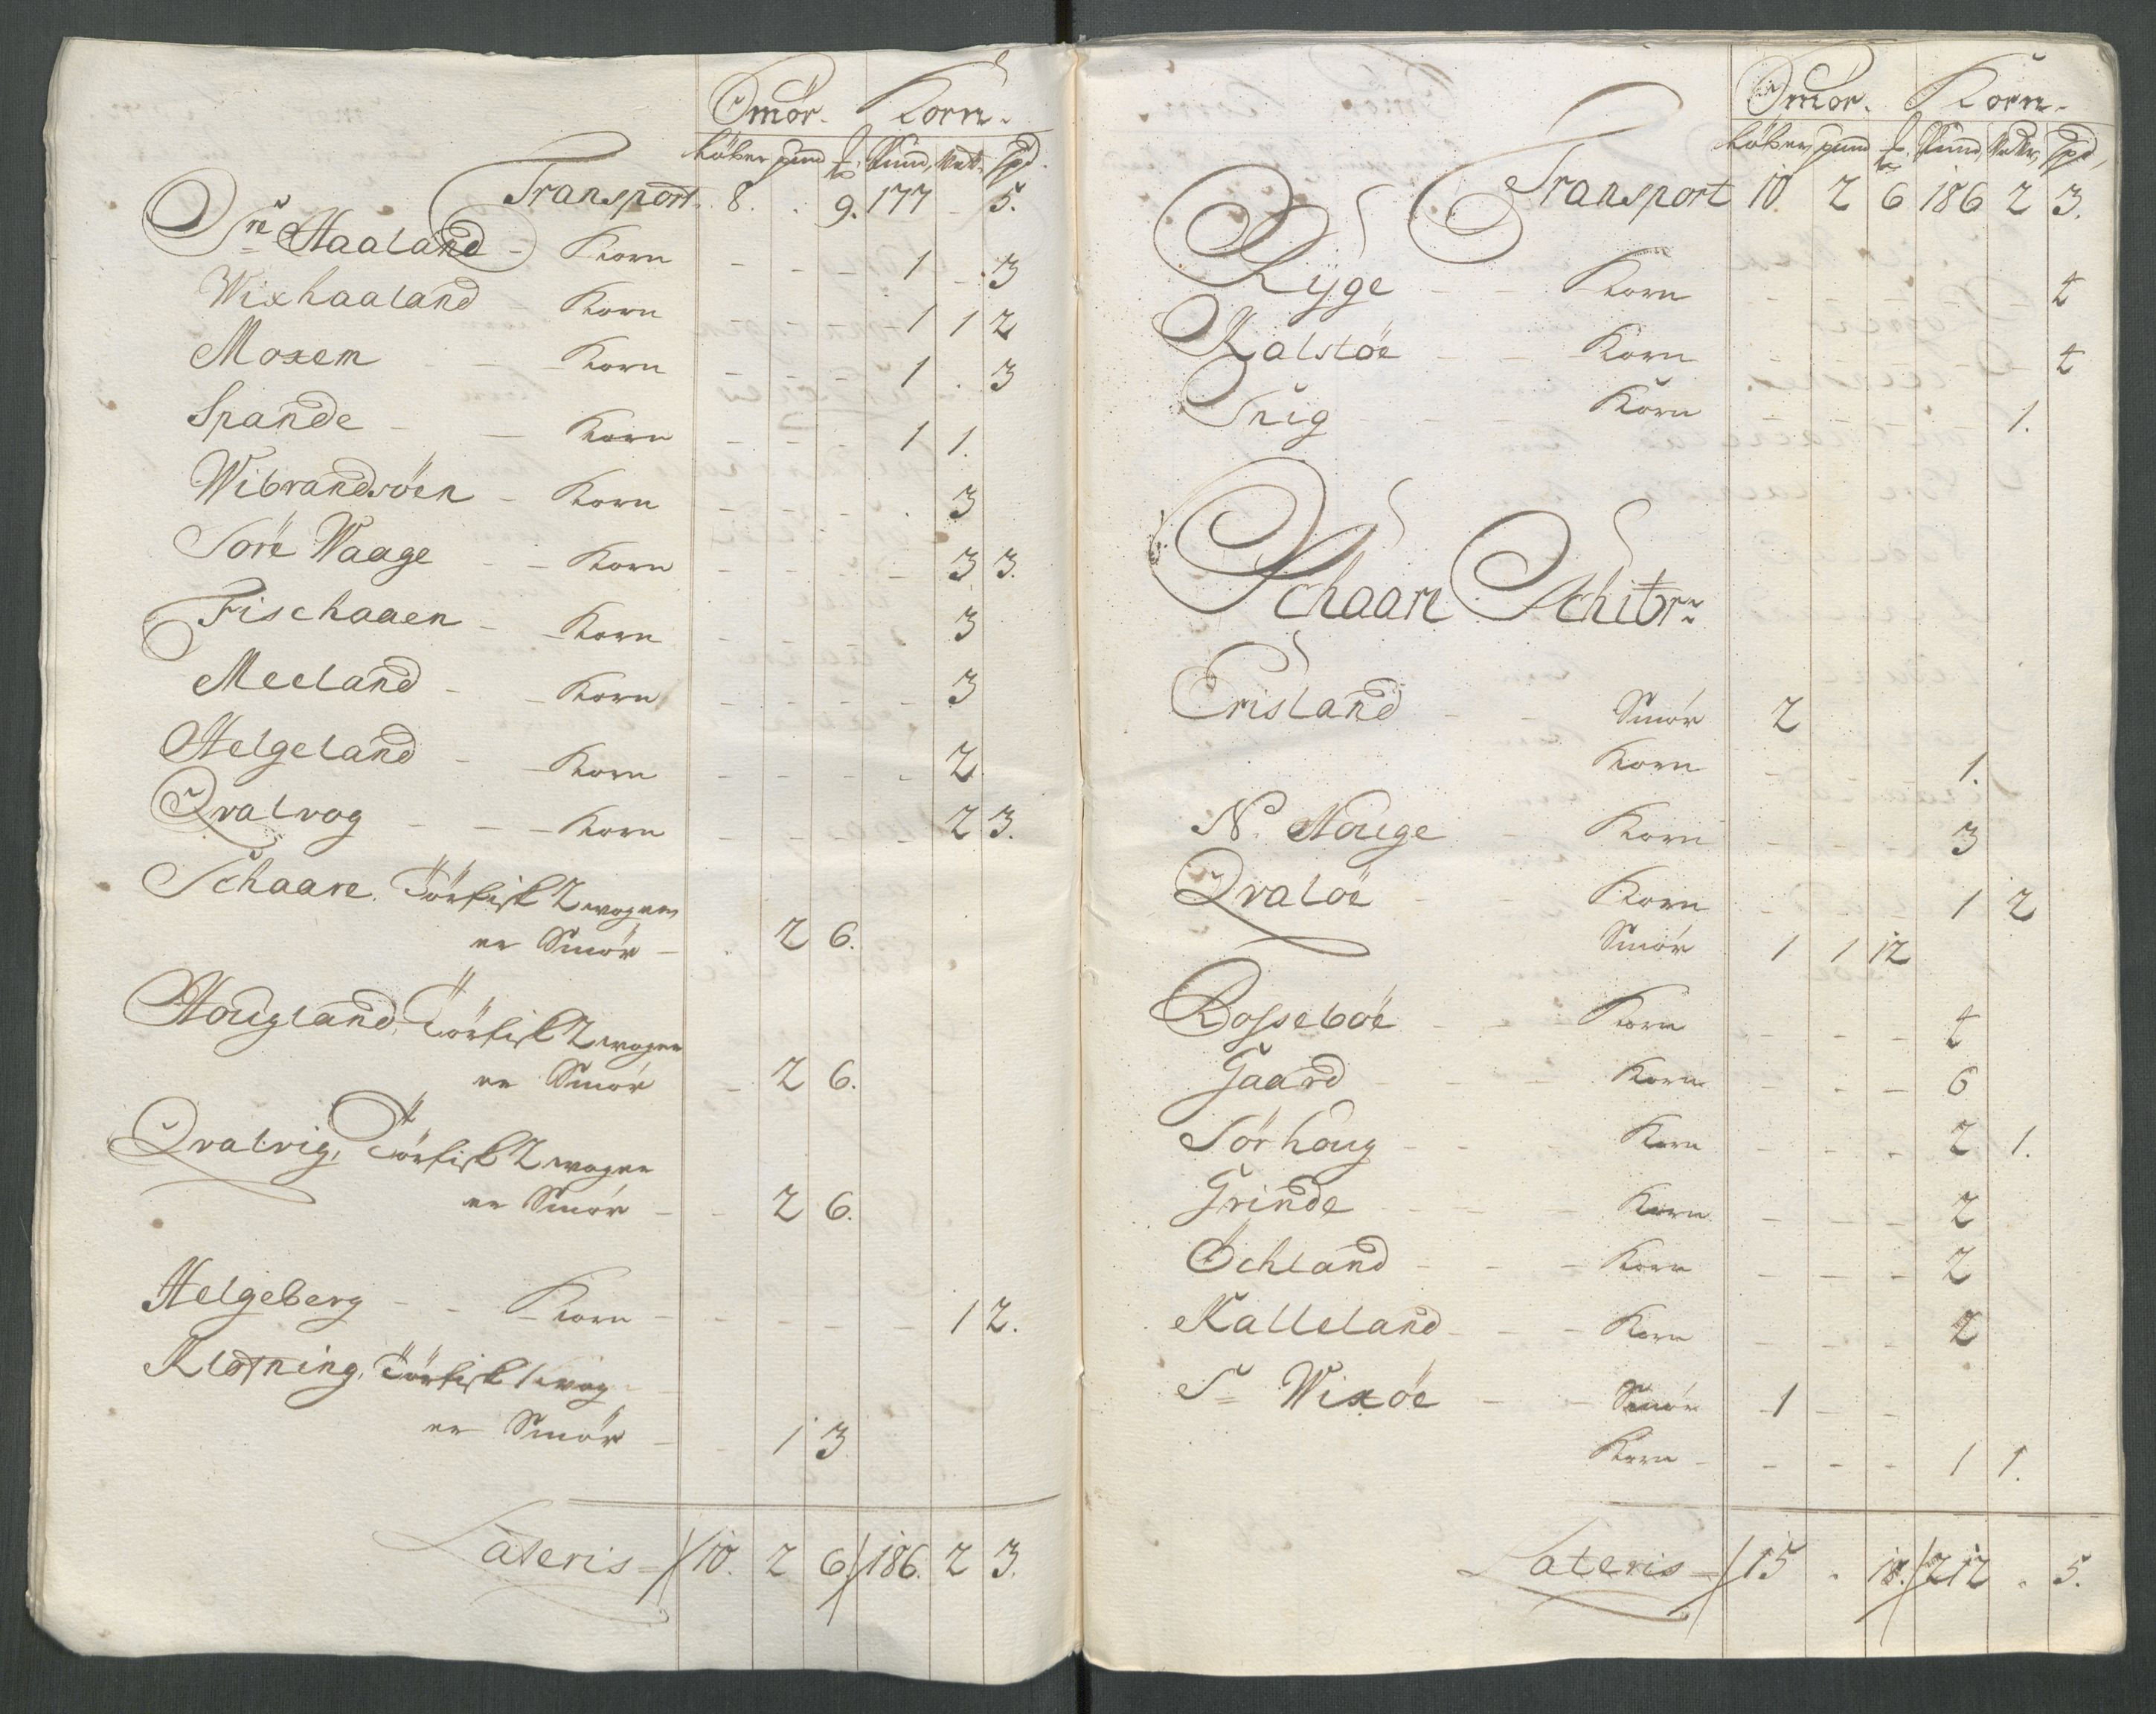 Smör. Korn.
Löber pund ℔. Pund, Vett: Spd.
Transport. 8. . 9. 177 - 5.
Sn Haaland - Korn - - - 1 - 3
Wixhaaland - Korn - - - 1 1 2
Moxem - - Korn - - - 1 . 3
Spande - - Korn - - - 1 1.
Wibrandsöen - Korn - - - . 3
Sore Waage - - Korn - - - - 3 3.
Fischaaen - - Korn - - - - 3
Meeland - - Korn - - - - 3
Helgeland - - Korn - - - - 2.
Qvalvog - - - Korn - - - - 2 3.
Schaare. Törfisk 2 wogner
er Smör - . 2 6.
Hougland, Törfisk 2 wogner
er Smör - 2 6.
Qvalvig, Törfisk 2 wogner
er Smör - - 2 6.
Helgeberg - - Korn - - - - - 1 2.
Klofning, Törfisk 1 wog
er Smör - - 1 3
Lateris = 10. 2 6. 186. 2 3.
Smör. Korn.
Löber, pund ℔ Pund, Vetter, Spd,
Transport 10. 2 6 186 2 3.
Ryge - - Korn - - - - - 4
Kalstöe - - Korn - - - - - 4
Snig - - - Korn - - - - 1.
Schaare Schibr:
Erisland - - Smör 2
Korn - - - 1.
N. Houge - Korn - - - 3
Qvaløe - - Korn - - - 1 2
Smör 1 1 12
Bosseböe - - Korn - - - 4
Gaard - - - Korn - - - 6
Sörhoug - - - Korn - - - 2 1.
Grinde - - - Korn - - - 2
Ochland - - - Korn - - - 2
Kalleland - - - Korn - - - 2
S= Wixöe - - Smör - 1 - -
Korn - - - - 1 1.
Lateris = 15 . 18. 212 . 5.